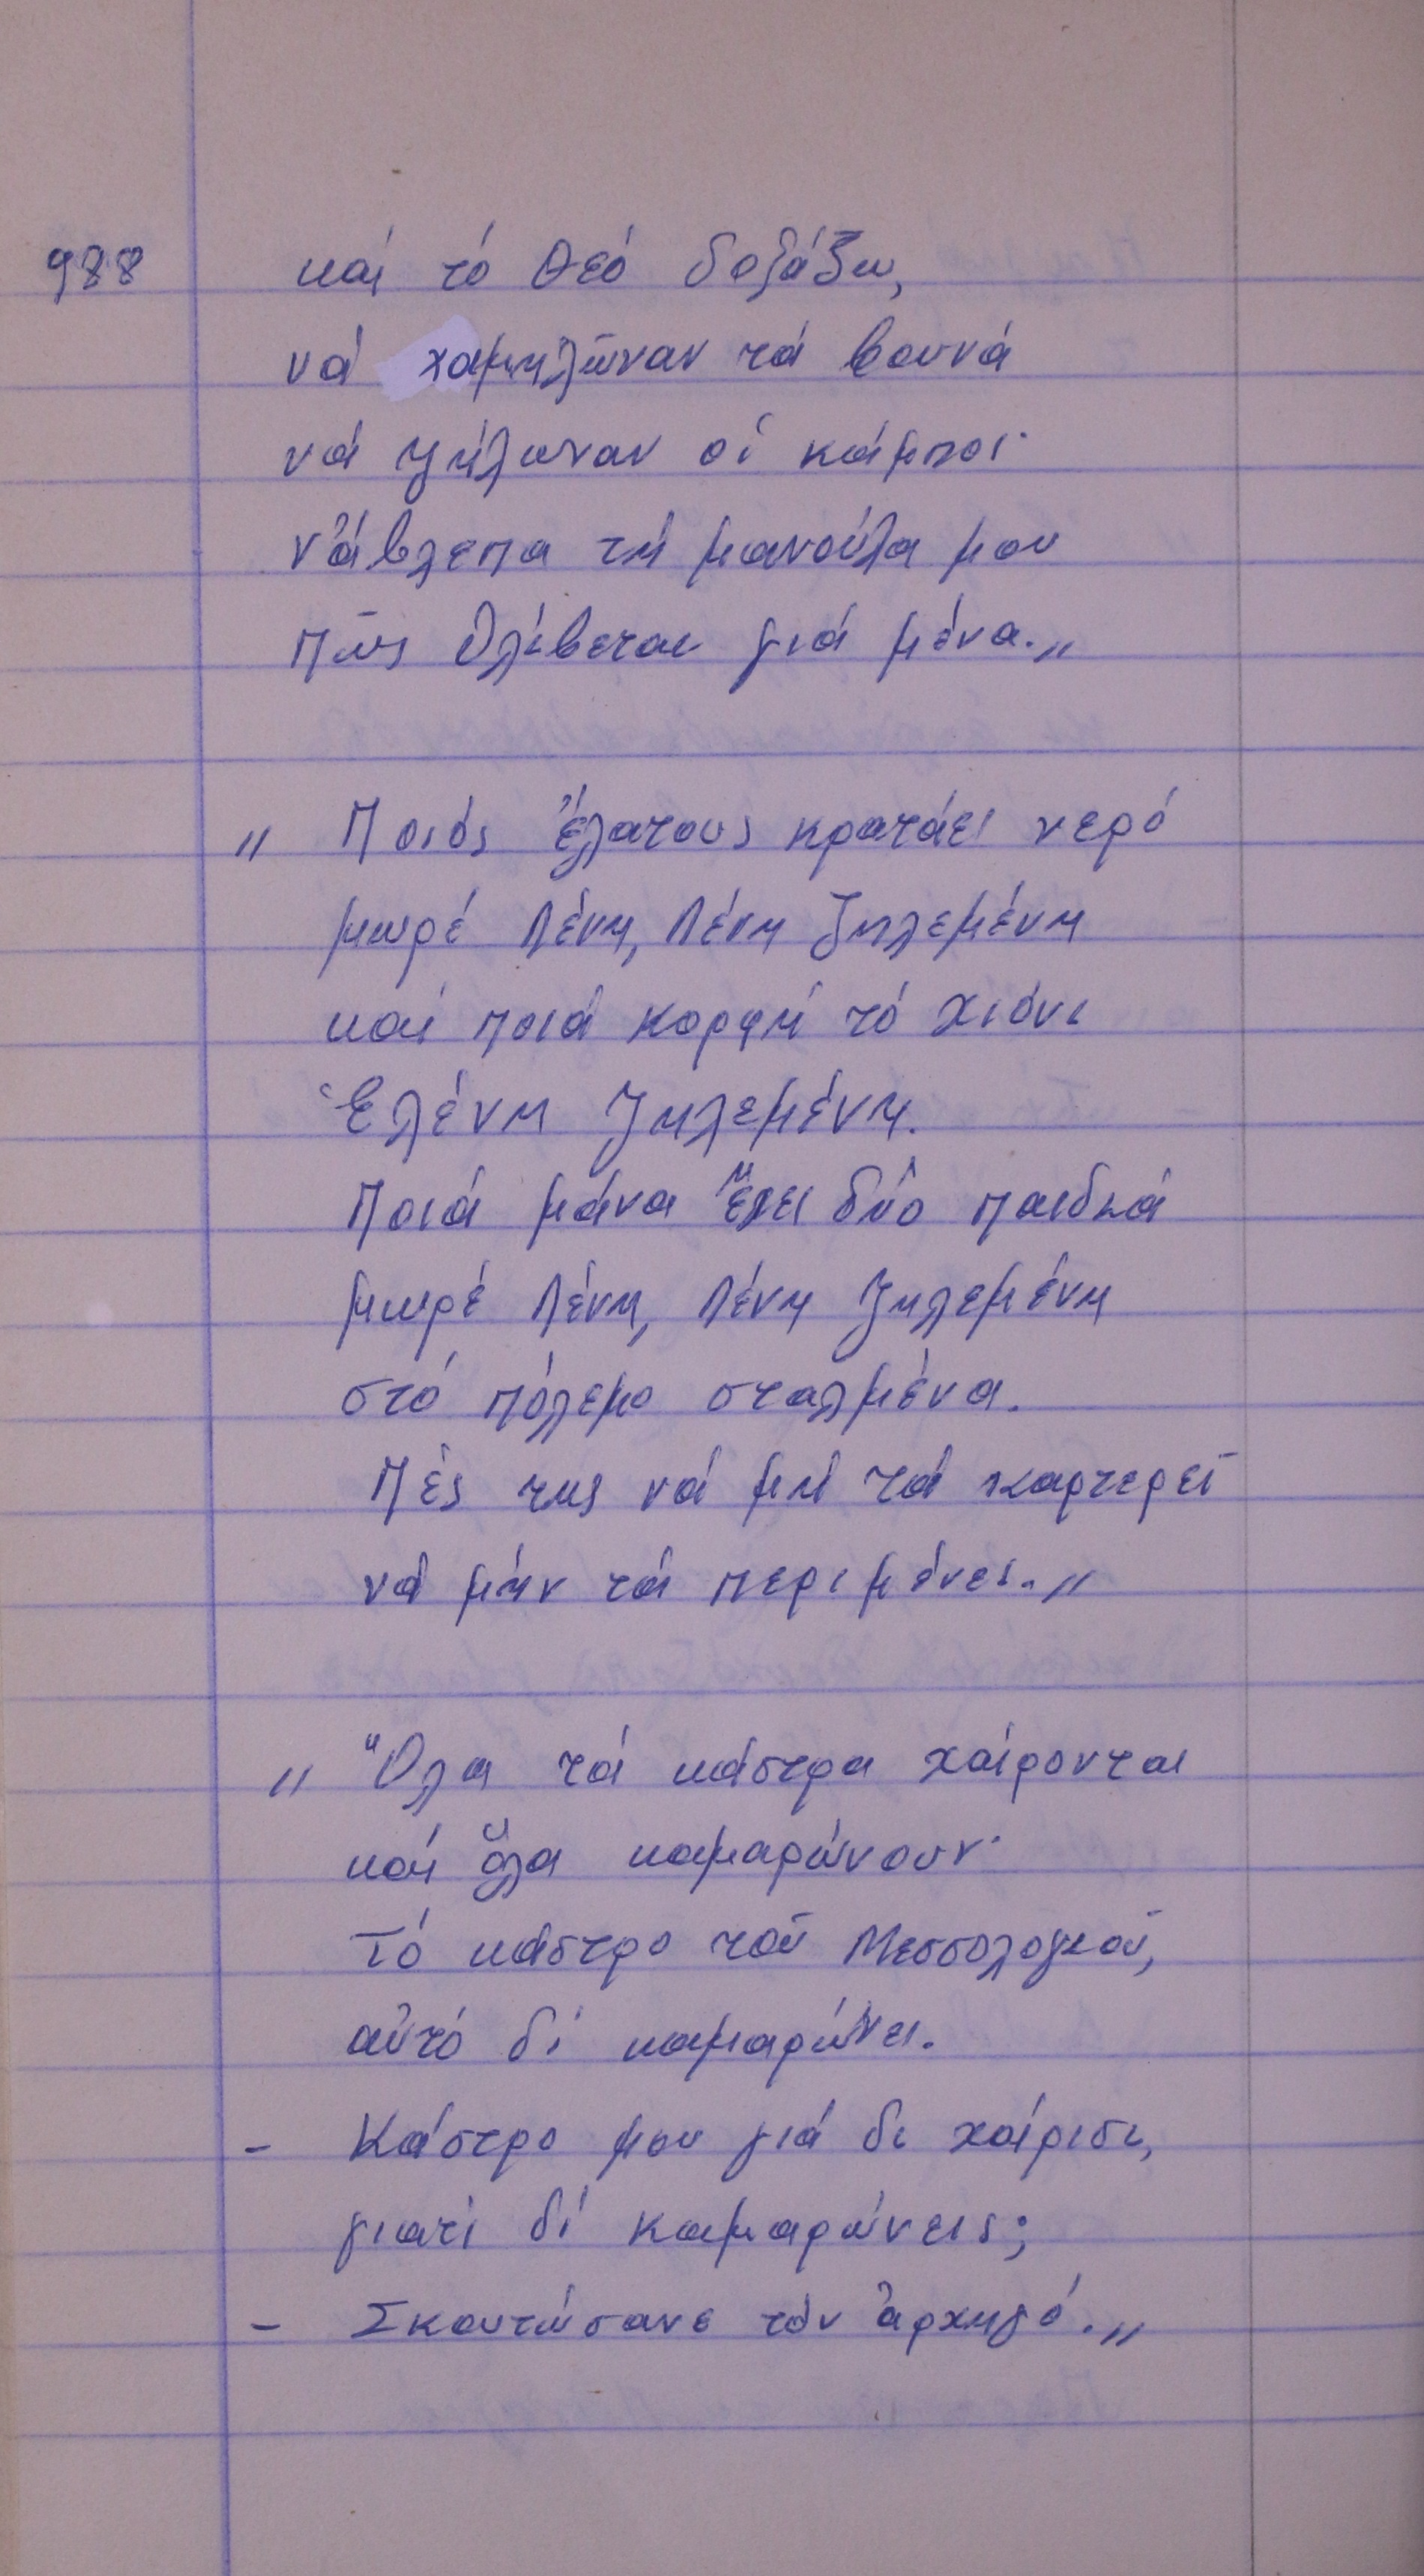 988 καί τό Θεό δοξάζω,
νά χαμηλῶναν τά βουνά
νά ψήλωναν οἱ κάμποι·
νἄβλεπα τή μανούλα μου
πῶς θλίβεται γιά μένα.„
„ Ποιός ἔλατους κρατάει νερό
μωρέ Λένη, Λένη ζηλεμένη
καί ποιά κορφή τό χιόνι
Ἑλένη ζηλεμένη.
Ποιά μάνα ἔχει δύο παιδιά
μωρέ Λένη, Λένη ζηλεμένη
στό πόλεμο σταλμένα.
Πές της νά μή τά καρτερεῖ
νά μήν τά περιμένει.„
„ Ὅλα τά κάστρα χαίρονται
καί ὅλα καμαρώνουν·
Τό κάστρο τοῦ Μεσσολογιοῦ,
αὐτό δί καμαρώνει.
- Κάστρο μου γιά δι χαίρισι,
γιατί δί καμαρώνεις;
- Σκουτώσανε τόν ἀρχηγό.„